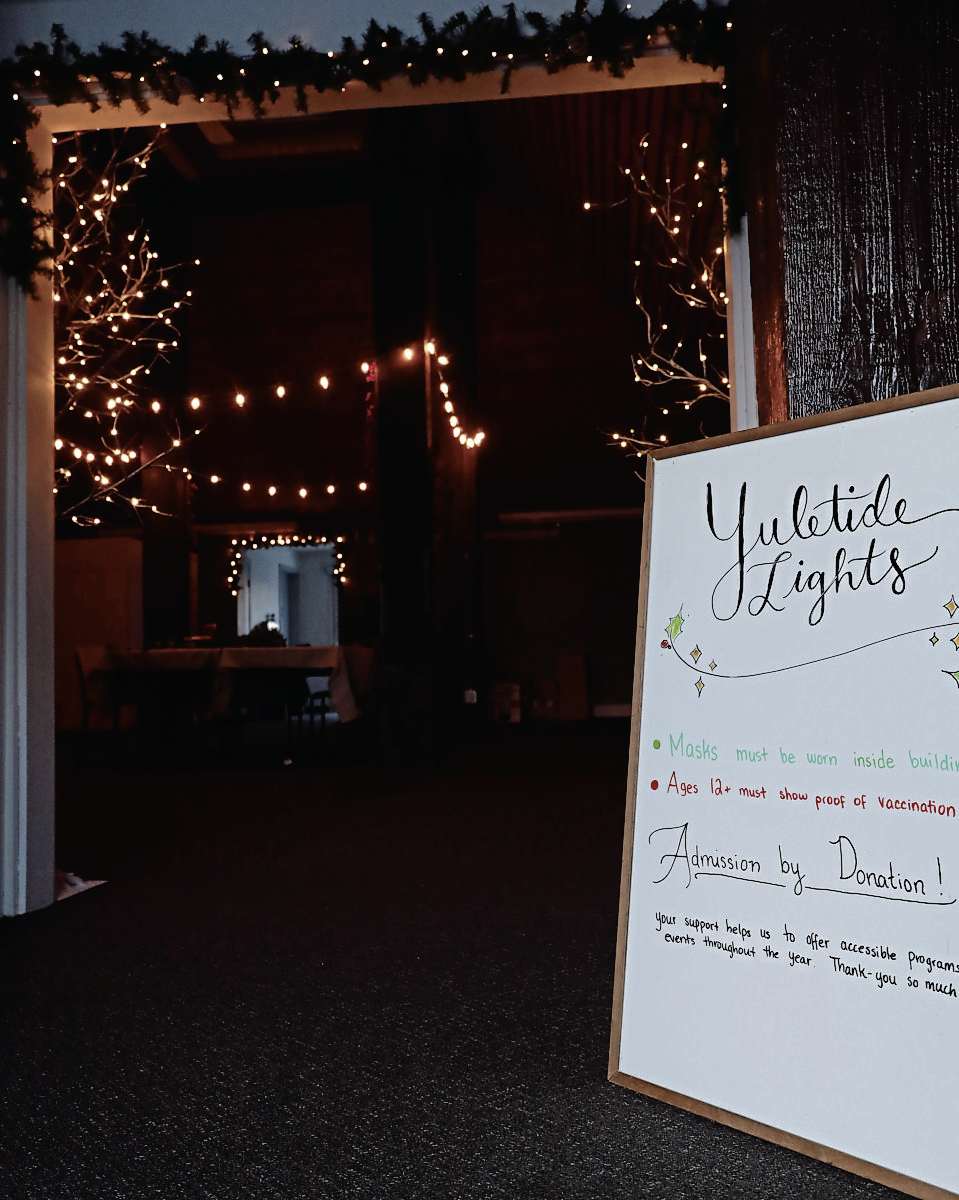 Yuletide
Lights
Masks must be worn inside buildin
Ages 12+ must show proof of vaccination
Admission by Donation!
your support helps us to offer accessible programs
events throughout the year. Thank-you so much